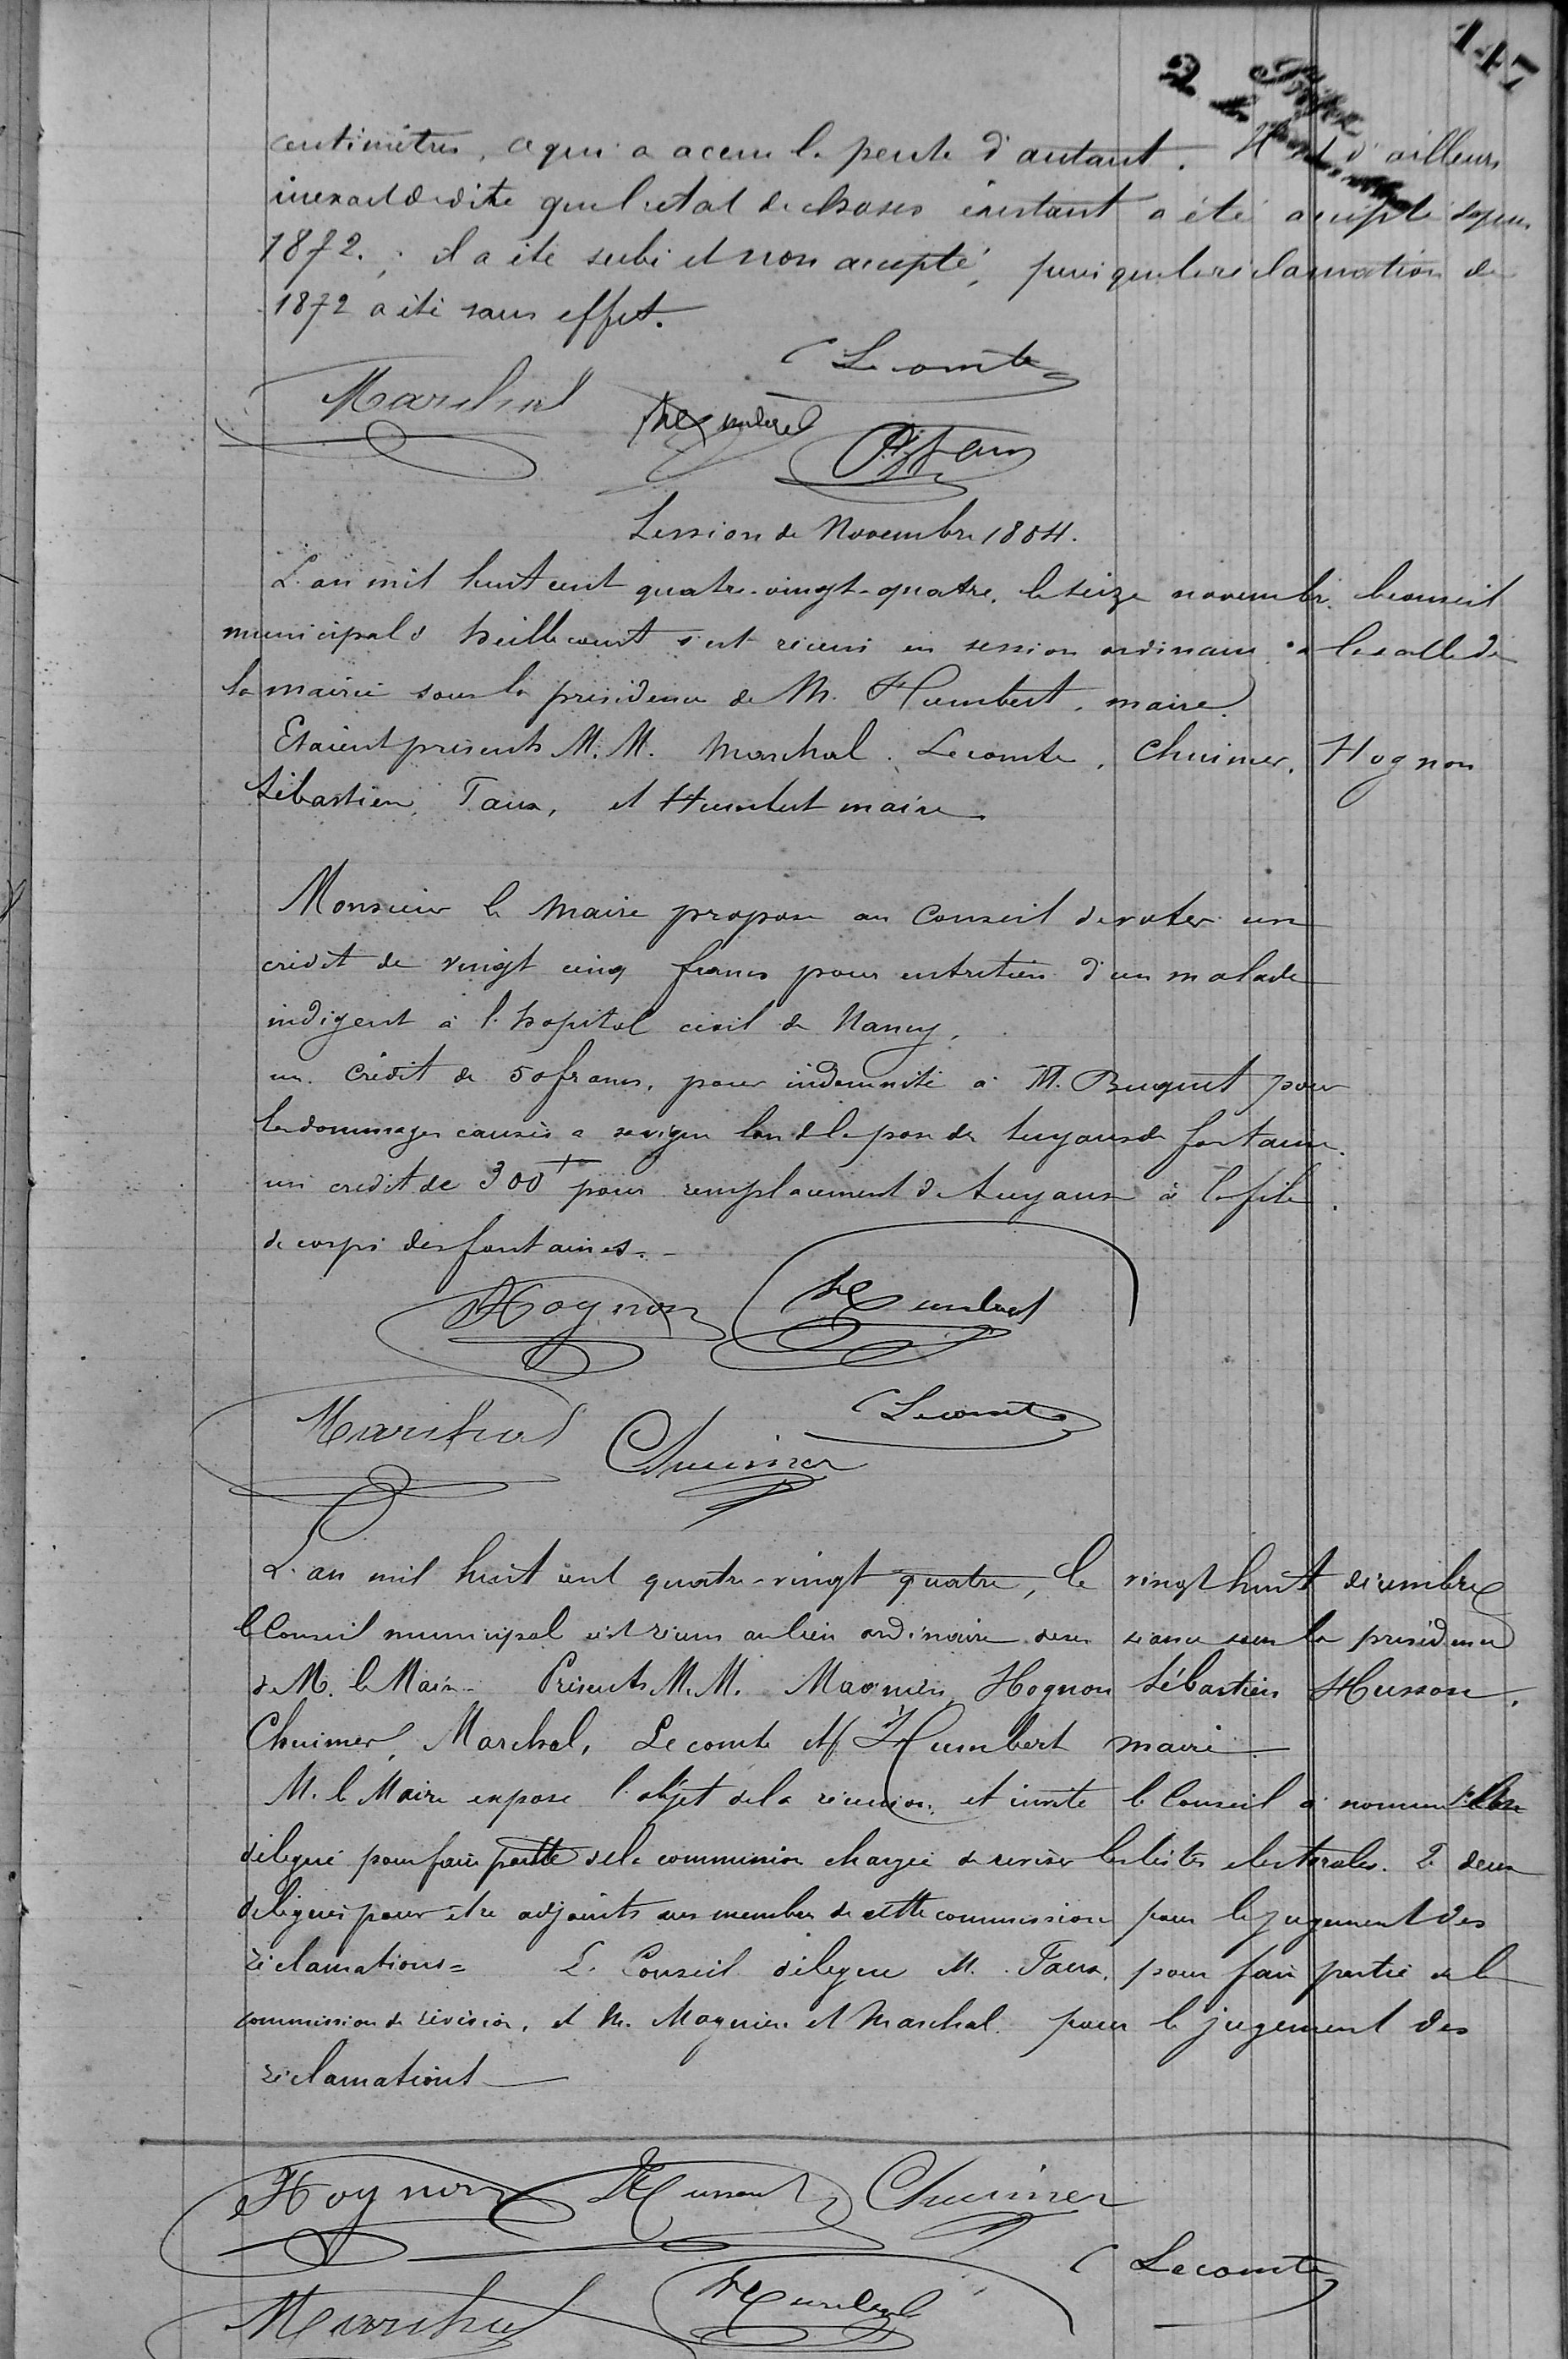 147
2
centimètres, ce qui a accru la pente d'autant. Il est d'ailleurs
inexact de dire que l'etat de choses existant a été accepté depuis
1872. ; il a été subi et non accepté, puisque la réclamation de
1872 a été sans effet.
Lecomte
Marchal Humbert
Session de Novembre 1884.
L'an mil huit cent quatre-vingt-quatre, le seize novembre, le conseil
municipal d' Heillecourt s'est réuni en session ordinaire à la salle de
la mairie sous la présidence de M. Humbert, maire.
Etaient présents M.M. Marchal. Lecomte, Chuimer, Hognon
Sébastien, Taux, et Humbert maire
Monsieur le Maire propose au Conseil de voter un
crédit de vingt cinq francs pour entretien d'un malade
indigent à l'hopital civil de Nancy,
un crédit de 50 francs, pour indemnité à M. Buquet pour
les dommages causés a sa vigne lors de la pose de tuyaux de fontaine.
un credit de 300f pour remplacement de tuyaux à la file
de corps des fontaines.-
Hognon Humbert
Marchal Chuimer Lecomte
L'an mil huit cent quatre-vingt quatre, le vingt huit décembre
le Conseil municipal s'est réuni au lieu ordinaire de ses séances sous la présidence
de M. le Maire- Présents M.M. Magnien, Hognon Sébastien Husson,
Chuimer, Marchal, Lecomte et Humbert maire.
M. le Maire expose l'objet de la réunion, et invite le Conseil à nommer 1° un
délegué pour faire partie de la commission chargée de reviser les listes electorales. 2° deux
délegués pour être adjoints aux membres de cette commission pour le jugement des
réclamations= Le Conseil délegue M. Taux, pour faire partie de la
commission de révision, et M. Magnien et Marchal. pour le jugement des
réclamations
Hognon Husson Chuimer
Lecomte
Marchal Humbert